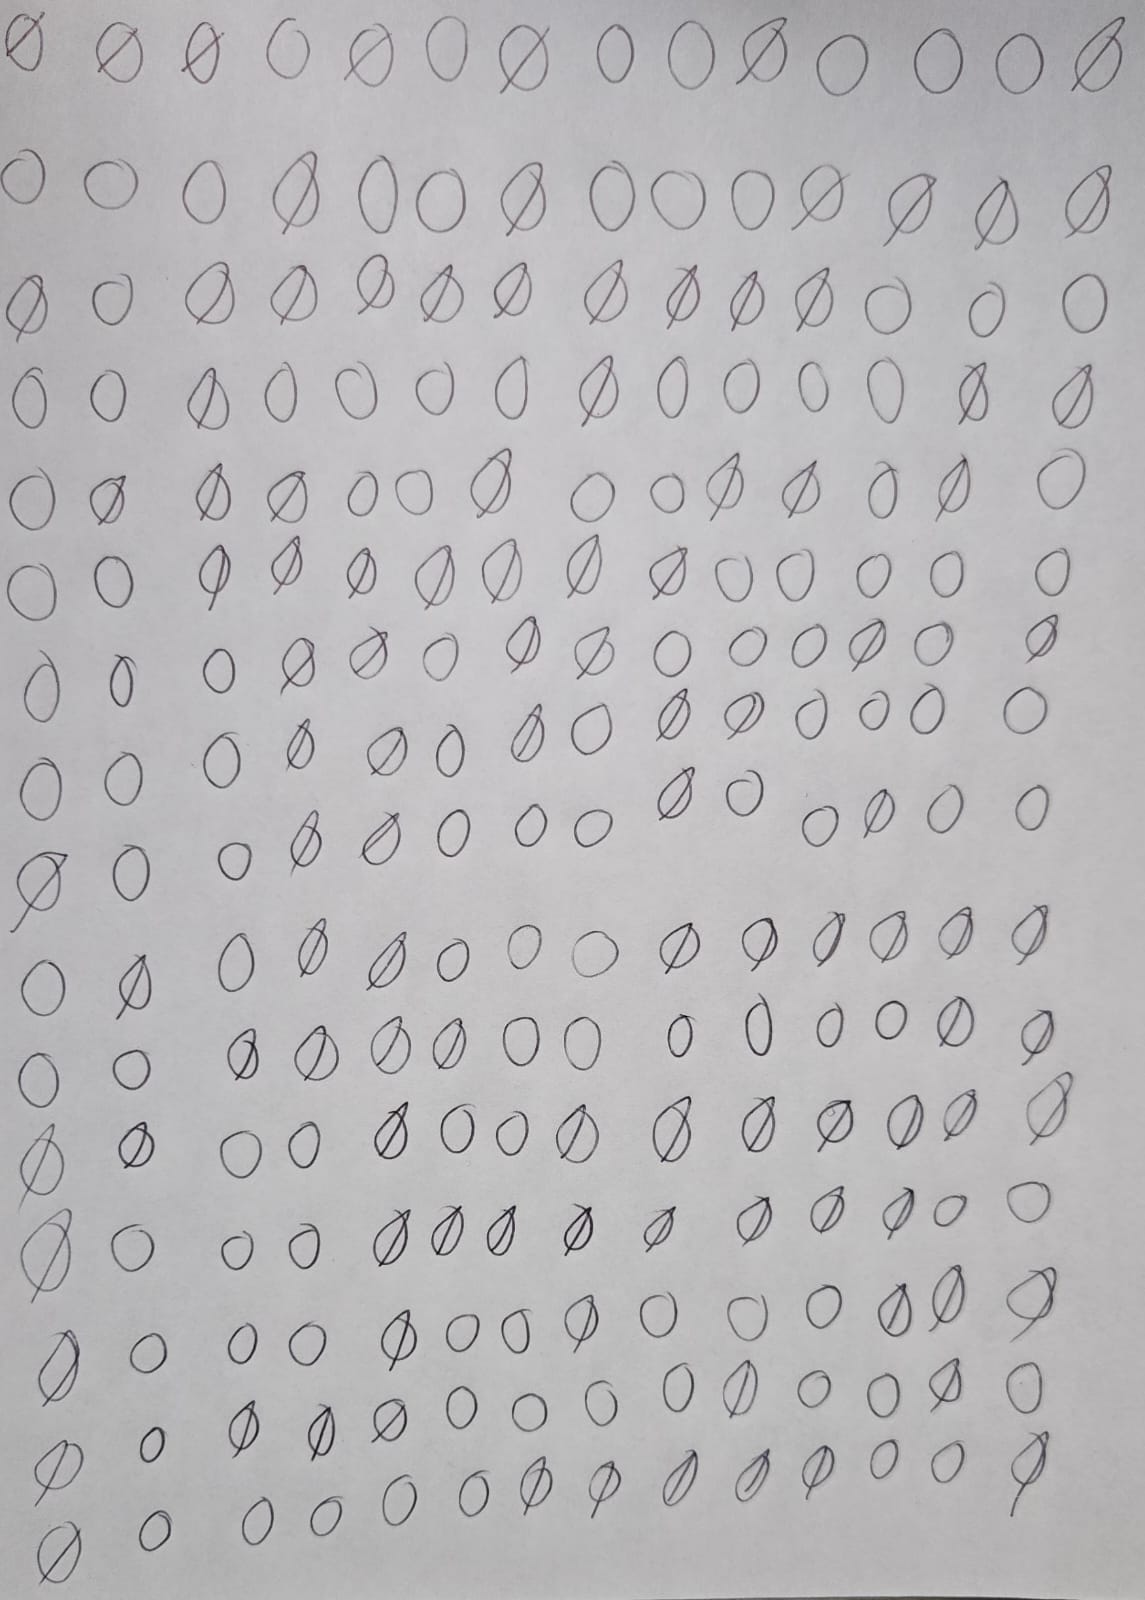 Ø Ø Ø O Ø O Ø O O Ø O O O Ø
O O O Ø O O Ø O O O Ø Ø Ø Ø
Ø O Ø Ø Ø Ø Ø Ø Ø Ø Ø O O O
O O Ø O O O O Ø O O O O Ø Ø
O Ø Ø Ø O O Ø O O Ø Ø O Ø O
O O Ø Ø Ø Ø Ø Ø Ø O O O O O
O O O Ø Ø O Ø Ø O O O Ø O Ø
O O O Ø Ø O Ø O Ø Ø O O O O
Ø O O Ø Ø O O O Ø O O Ø O O
O Ø O Ø Ø O O O Ø Ø Ø Ø Ø Ø
O O Ø Ø Ø Ø O O O O O O Ø Ø
Ø Ø O O Ø O O Ø Ø Ø Ø Ø Ø Ø
Ø O O O Ø Ø Ø Ø Ø Ø Ø Ø O O
Ø O O O Ø O O Ø O O O Ø Ø Ø
Ø O Ø Ø Ø O O O O Ø O O Ø O
Ø O O O O O Ø Ø Ø Ø Ø O O Ø